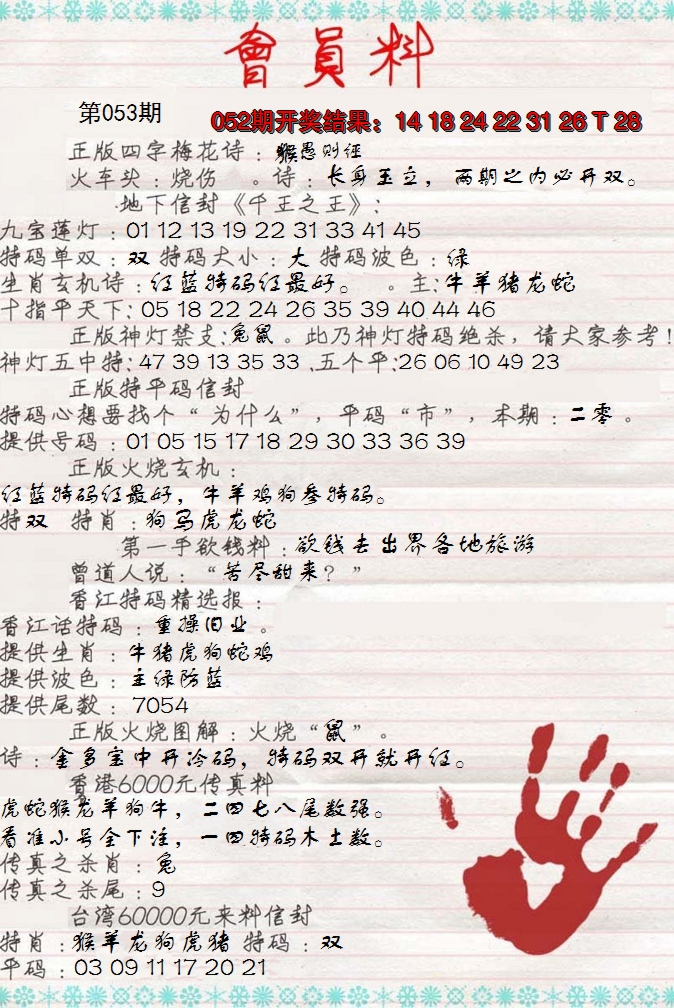 會員料
第053期
052期开奖结果：14 18 24 22 31 26 T 28
正版四字梅花诗：猴愚则经
火车头：烧伤 。诗：长身玉立，两期之内必开双。
地下信封《千王之王》：
九宝莲灯：01 12 13 19 22 31 33 41 45
特码单双：双 特码大小：大 特码波色：绿
生肖玄机诗：红蓝特码红最好。 。主：牛羊猪龙蛇
十指平天下：05 18 22 24 26 35 39 40 44 46
正版神灯禁支：兔鼠。此乃神灯特码绝杀，请大家参考！
神灯五中特：47 39 13 35 33 .五个平：26 06 10 49 23
正版特平码信封
特码心想要找个“为什么”，平码“市”，本期：二零。
提供号码：01 05 15 17 18 29 30 33 36 39
正版火烧玄机：
红蓝特码红最好，牛羊鸡狗参特码。
特双 特肖：狗马虎龙蛇
第一手欲钱料：欲钱去出界各地旅游
曾道人说：“苦尽甜来？”
香江特码精选报：
香江话特码：重操旧业。
提供生肖：牛猪虎狗蛇鸡
提供波色：主绿防蓝
提供尾数：7054
正版火烧图解：火烧“鼠”。
诗：金多宝中开冷码，特码双开就开红。
香港6000元传真料
虎蛇猴龙羊狗牛，二四七八尾数强。
看准小号全下注，一四特码木土数。
传真之杀肖：兔
传真之杀尾：9
台湾60000元来料信封
特肖：猴羊龙狗虎猪 特码：双
平码：03 09 11 17 20 21